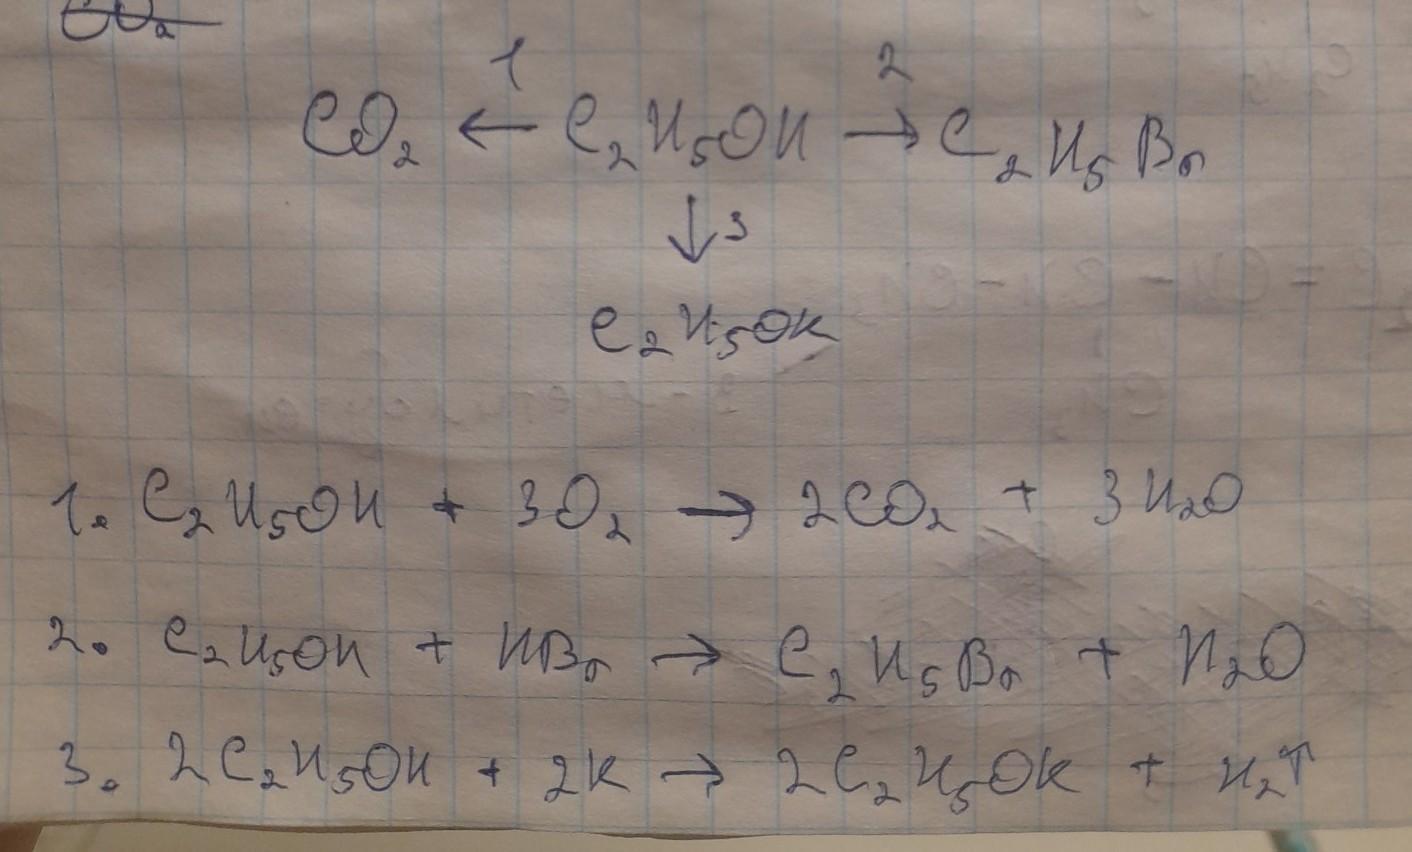 CO₂
1 2
CO₂ ← C₂H₅OH → C₂H₅Br
↓ 3
C₂H₅OK
1. C₂H₅OH + 3O₂ → 2CO₂ + 3H₂O
2. C₂H₅OH + HBr → C₂H₅Br + H₂O
3. 2C₂H₅OH + 2K → 2C₂H₅OK + H₂↑